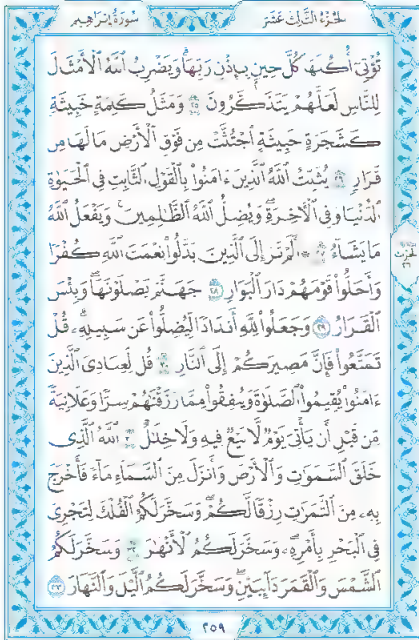 سُورَةُ إِبْرَاهِيم
الجُزْءُ الثَّالِثَ عَشَرَ
تُؤْتِىٓ أُكُلَهَا كُلَّ حِينٍۭ بِإِذْنِ رَبِّهَا ۗ وَيَضْرِبُ ٱللَّهُ ٱلْأَمْثَالَ
لِلنَّاسِ لَعَلَّهُمْ يَتَذَكَّرُونَ ٢٥ وَمَثَلُ كَلِمَةٍ خَبِيثَةٍ
كَشَجَرَةٍ خَبِيثَةٍ ٱجْتُثَّتْ مِن فَوْقِ ٱلْأَرْضِ مَا لَهَا مِن
قَرَارٍ ٢٦ يُثَبِّتُ ٱللَّهُ ٱلَّذِينَ ءَامَنُوا۟ بِٱلْقَوْلِ ٱلثَّابِتِ فِى ٱلْحَيَوٰةِ
ٱلدُّنْيَا وَفِى ٱلْـَٔاخِرَةِ ۖ وَيُضِلُّ ٱللَّهُ ٱلظَّـٰلِمِينَ ۚ وَيَفْعَلُ ٱللَّهُ
مَا يَشَآءُ ٢٧ ۞ أَلَمْ تَرَ إِلَى ٱلَّذِينَ بَدَّلُوا۟ نِعْمَتَ ٱللَّهِ كُفْرًا
وَأَحَلُّوا۟ قَوْمَهُمْ دَارَ ٱلْبَوَارِ ٢٨ جَهَنَّمَ يَصْلَوْنَهَا ۖ وَبِئْسَ
ٱلْقَرَارُ ٢٩ وَجَعَلُوا۟ لِلَّهِ أَندَادًا لِّيُضِلُّوا۟ عَن سَبِيلِهِۦ ۗ قُلْ
تَمَتَّعُوا۟ فَإِنَّ مَصِيرَكُمْ إِلَى ٱلنَّارِ ٣٠ قُل لِّعِبَادِىَ ٱلَّذِينَ
ءَامَنُوا۟ يُقِيمُوا۟ ٱلصَّلَوٰةَ وَيُنفِقُوا۟ مِمَّا رَزَقْنَـٰهُمْ سِرًّا وَعَلَانِيَةً
مِّن قَبْلِ أَن يَأْتِىَ يَوْمٌ لَّا بَيْعٌ فِيهِ وَلَا خِلَـٰلٌ ٣١ ٱللَّهُ ٱلَّذِى
خَلَقَ ٱلسَّمَـٰوَٰتِ وَٱلْأَرْضَ وَأَنزَلَ مِنَ ٱلسَّمَآءِ مَآءً فَأَخْرَجَ
بِهِۦ مِنَ ٱلثَّمَرَٰتِ رِزْقًا لَّكُمْ ۖ وَسَخَّرَ لَكُمُ ٱلْفُلْكَ لِتَجْرِىَ
فِى ٱلْبَحْرِ بِأَمْرِهِۦ ۖ وَسَخَّرَ لَكُمُ ٱلْأَنْهَـٰرَ ٣٢ وَسَخَّرَ لَكُمُ
ٱلشَّمْسَ وَٱلْقَمَرَ دَآئِبَيْنِ ۖ وَسَخَّرَ لَكُمُ ٱلَّيْلَ وَٱلنَّهَارَ ٣٣
٢٥٩